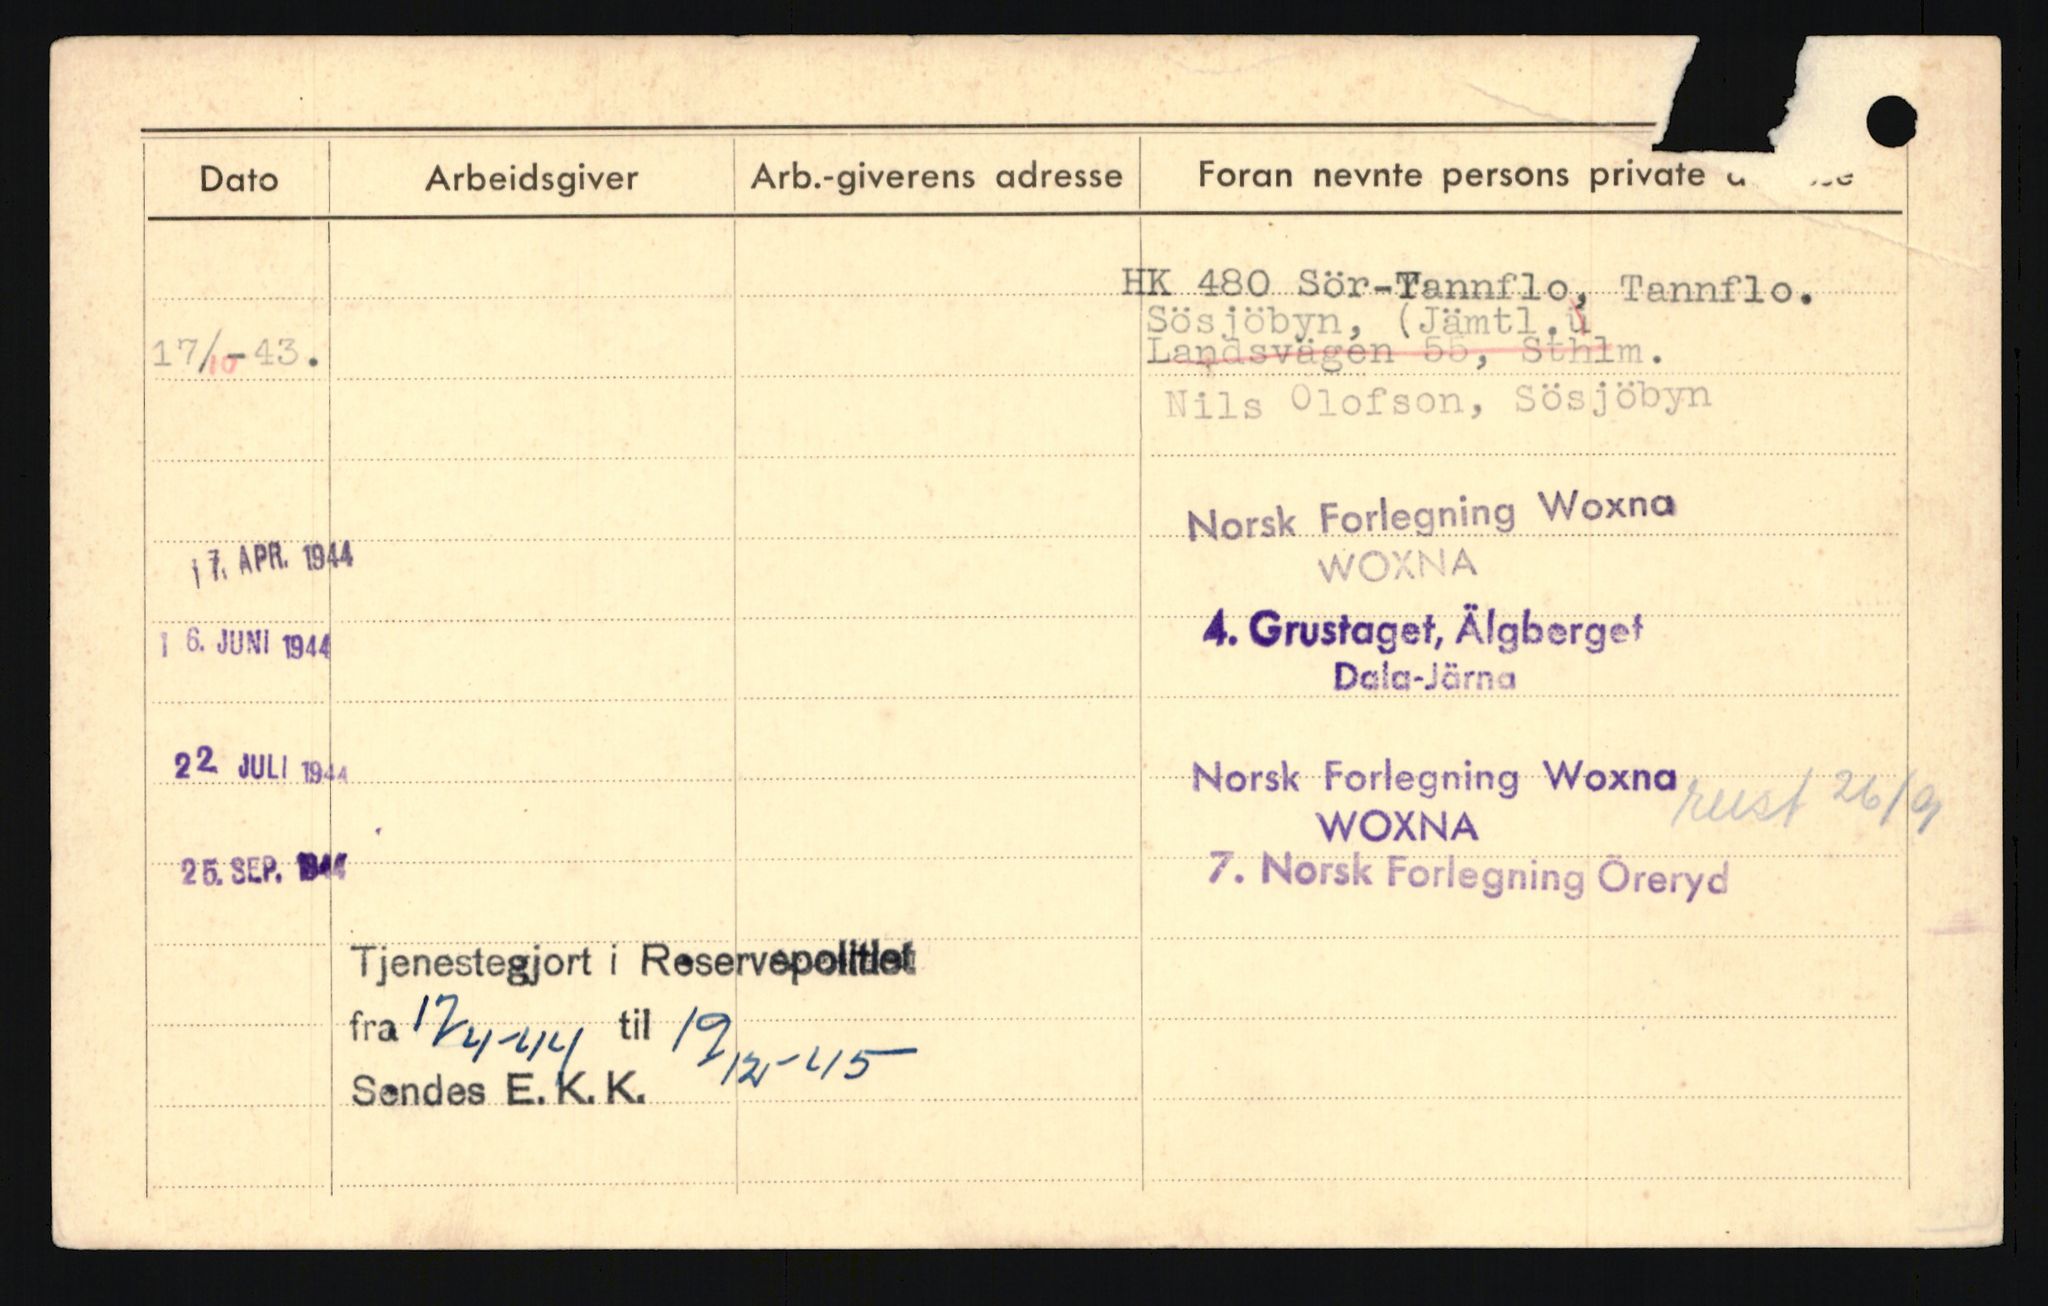 Dato Arbeidsgiver Arb.-giverens adresse Foran nevnte persons private
HK 480 Sör-Tannflo, Tannflo.
Sösjöbyn, (Jämtl.
17/10-43. Landsvägen 55, Sthlm.
Nils Olofson, Sösjöbyn
Norsk Forlegning Woxna
17. APR. 1944 WOXNA
16. JUNI 1944 4. Grustaget, Älgberget
Dala-Järna
22 JULI 1944 Norsk Forlegning Woxna rust 26/9
WOXNA
25. SEP. 1944 7. Norsk Forlegning Öreryd
Tjenestegjort i Reservepolitiet
fra 17/4-44 til 19/12-45
Sendes E. K. K.